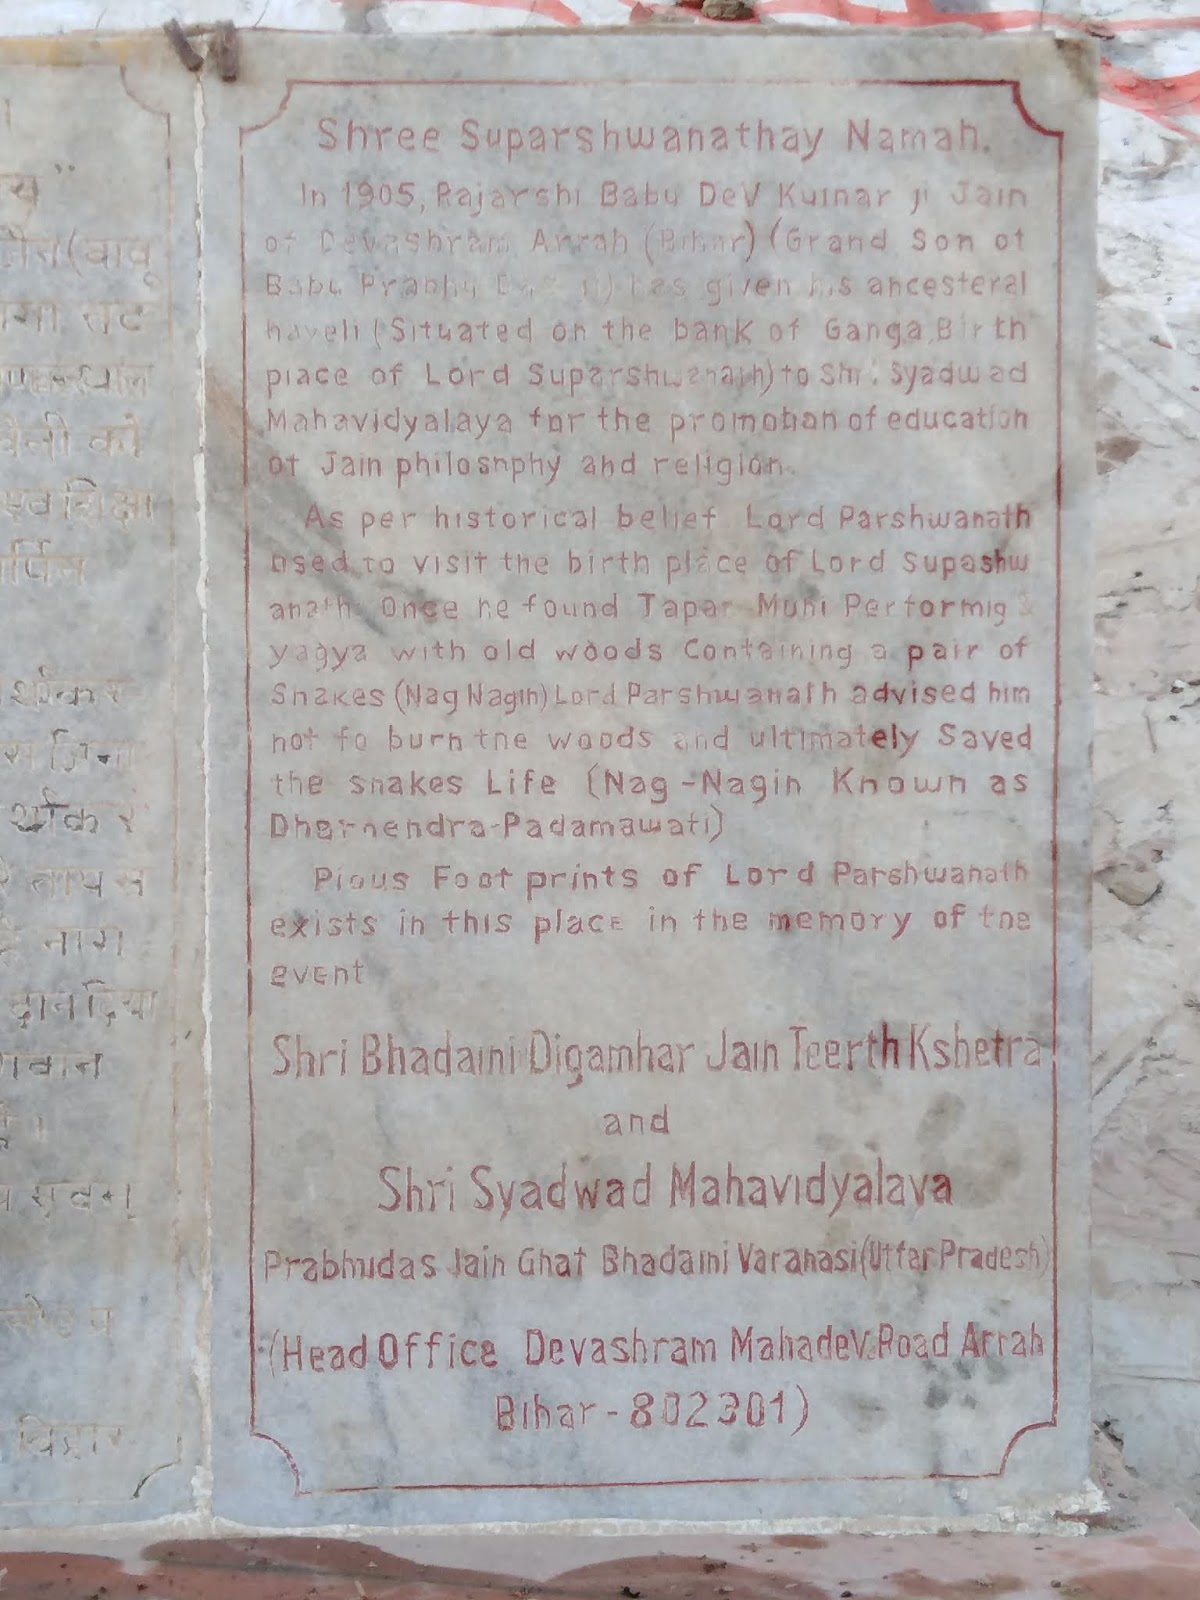 य"
जैन(बाबू
गंगा तट
वेली को
एवं शिक्षा
र्थंकर
र्थंकर
नाग
दान दिया
गवान
है।
एवम्
बिहार
Shree Suparshwanathay Namah.
In 1905, Rajarshi Babu Dev Kumar ji Jain
of Devashram Arrah (Bihar) (Grand Son of
Babu Prabhu has given his ancesteral
haveli (Situated on the bank of Ganga, Birth
place of Lord Suparshwanath) to Shri. Syadwad
Mahavidyalaya for the promotian of education
of Jain philosophy and religion.
As per historical belief Lord Parshwanath
used to visit the birth place of Lord Supashw
anath. Once he found Tapar Muni Performig
yagya with old woods Containing a pair of
Snakes (Nag Nagin) Lord Parshwanath advised him
not to burn the woods and ultimately Saved
the snakes Life (Nag-Nagin Known as
Dharnendra-Padamawati)
Pious Foot prints of Lord Parshwanath
exists in this place in the memory of the
event
Shri Bhadaini Digambar Jain Teerth Kshetra
and
Shri Syadwad Mahavidyalaya
Prabhudas Jain Ghat Bhadaini Varanasi (Uttar Pradesh)
(Head Office Devashram Mahadev Road Arrah
Bihar - 802301)